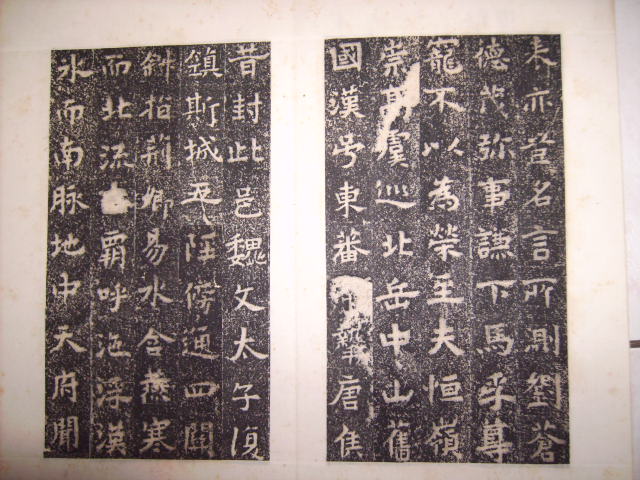 未亦豈名言所測劉蒼
德茂弥事謙下馬孚尊
寵不以為榮至夫恒嶺
崇虞巡北岳中山舊
國漢号東蕃唐侯
昔封此邑魏文太子復
鎮斯城陘傍通四關
斜指荊鄉易水含燕寒
而北流霸呼沲浮漢
氷而南脉地中天府聞